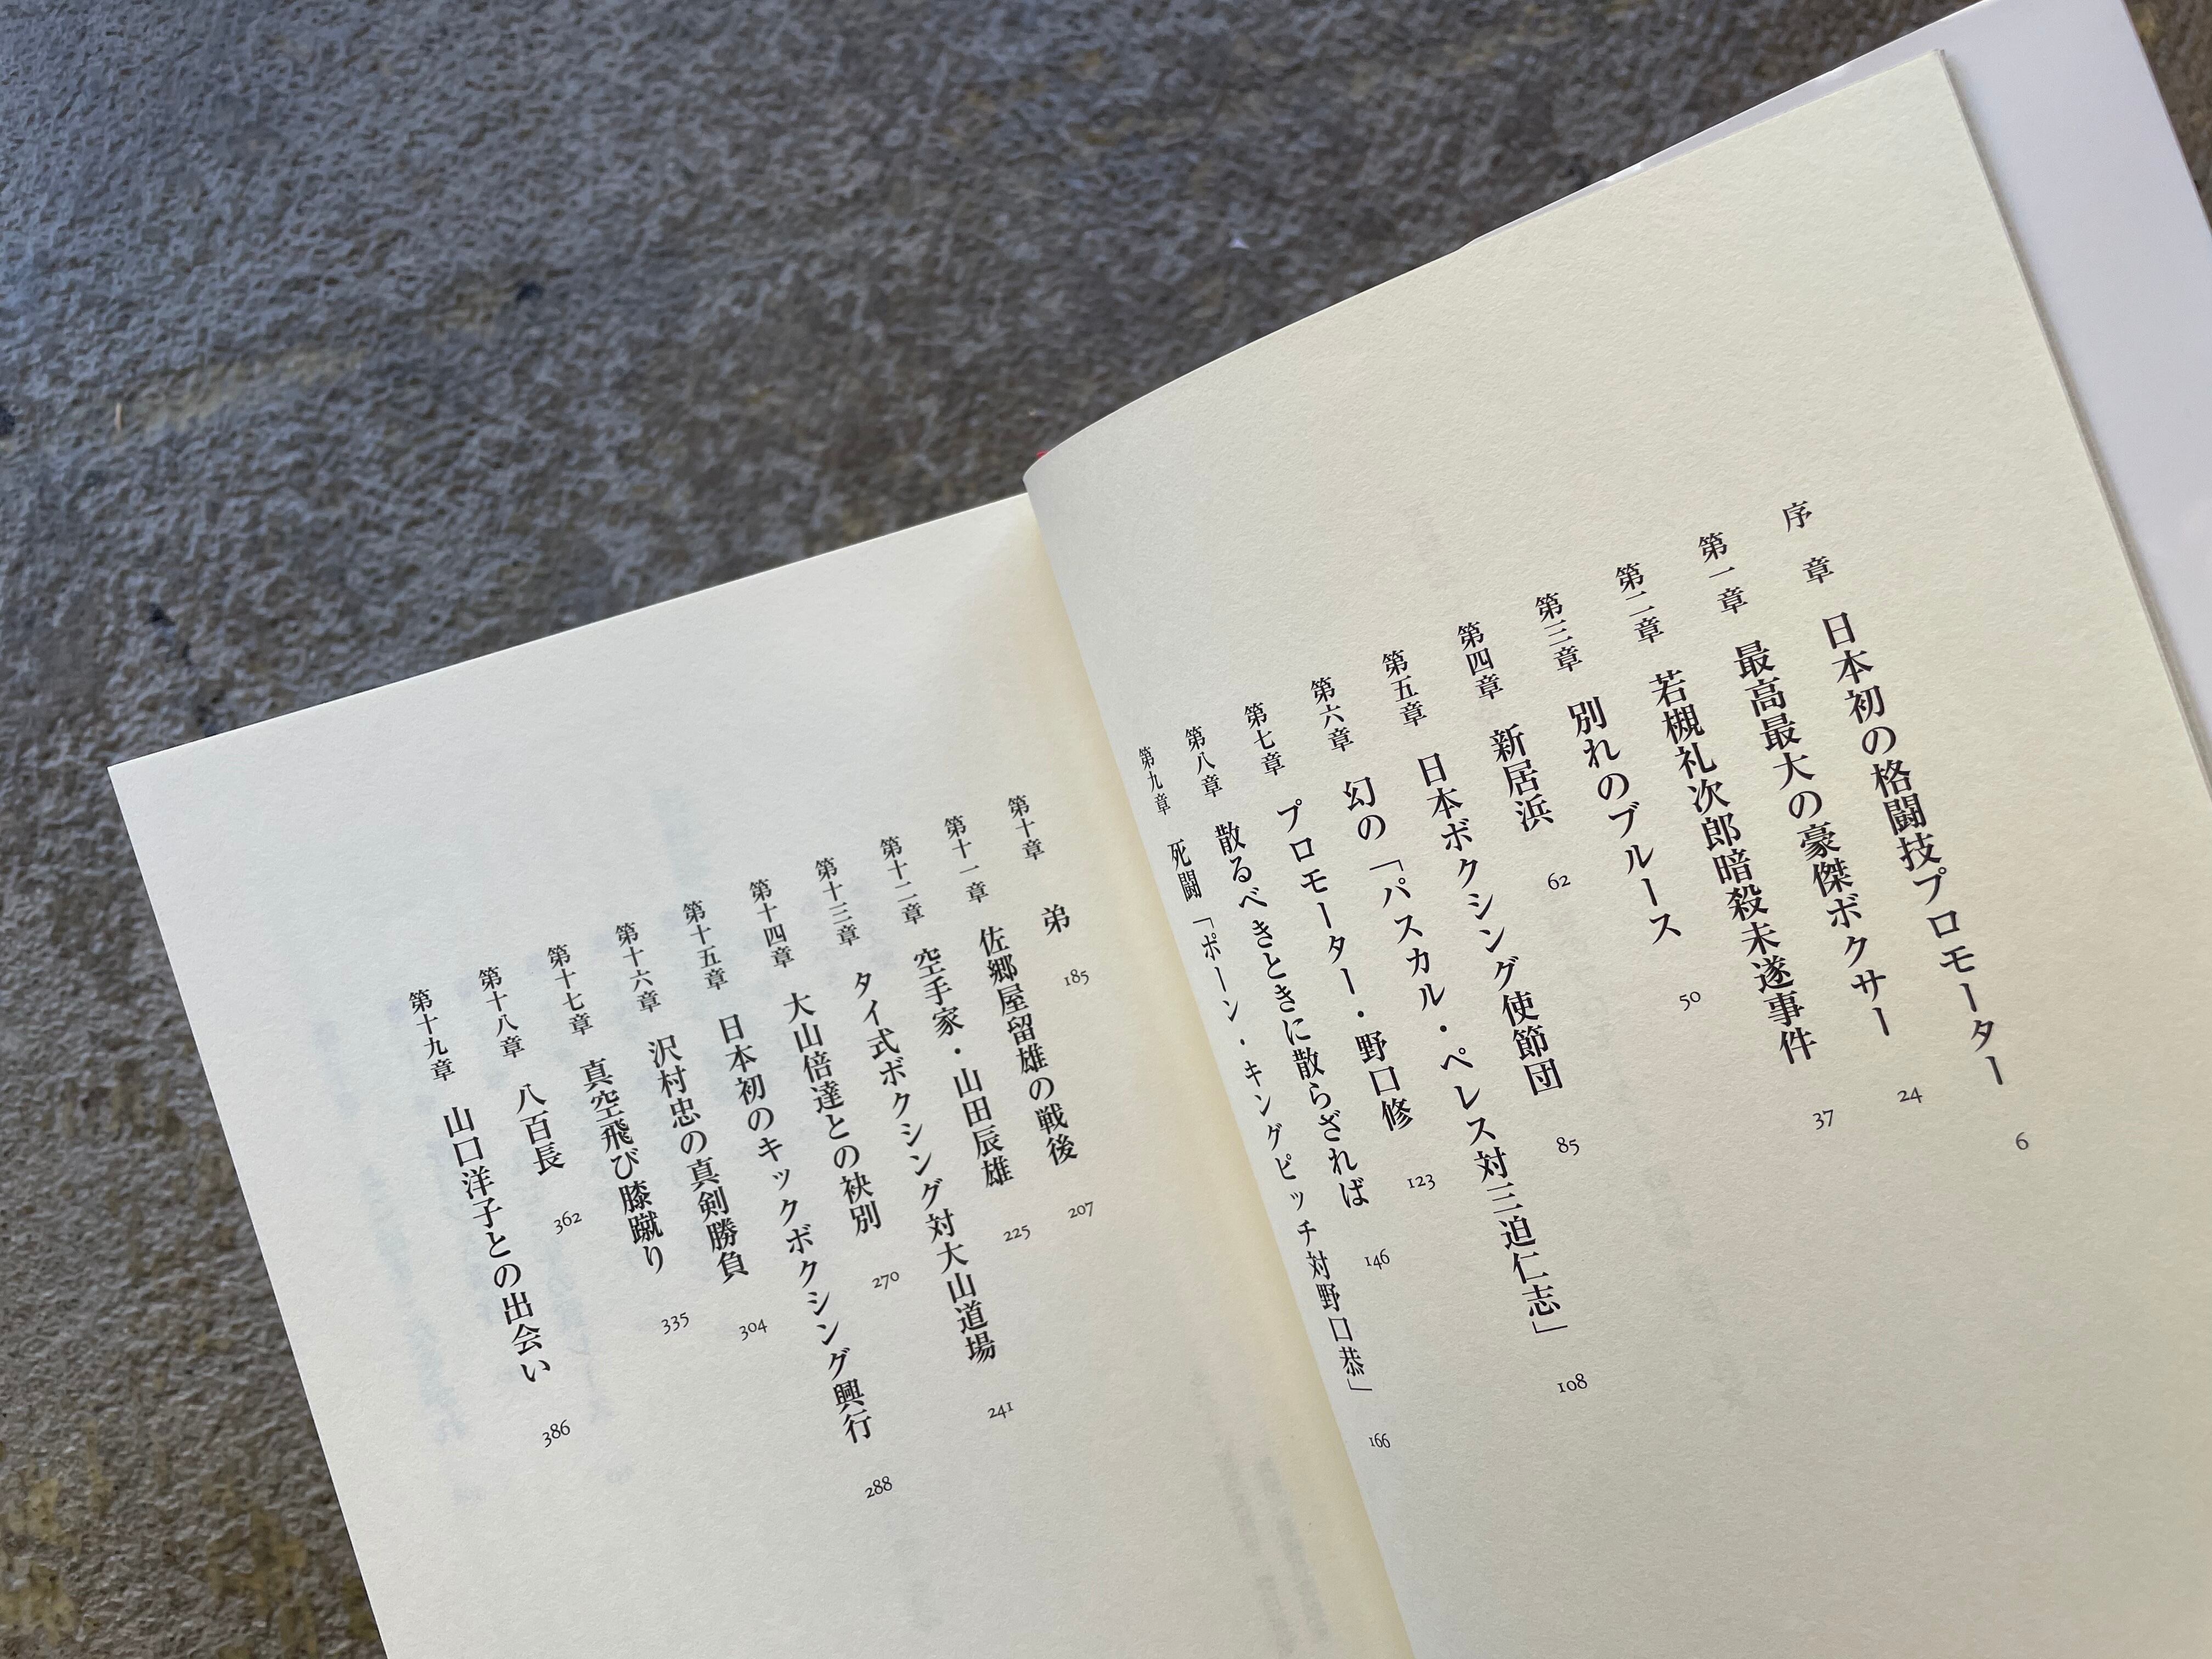 序　章　日本初の格闘技プロモーター　6
第一章　最高最大の豪傑ボクサー　24
第二章　若槻礼次郎暗殺未遂事件　37
第三章　別れのブルース　50
第四章　新居浜　62
第五章　日本ボクシング使節団　85
第六章　幻の「パスカル・ペレス対三迫仁志」　108
第七章　プロモーター・野口修　123
第八章　散るべきときに散らざれば　146
第九章　死闘「ポーン・キングピッチ対野口恭」　166
第十章　弟　185
第十一章　佐郷屋留雄の戦後　207
第十二章　空手家・山田辰雄　225
第十三章　タイ式ボクシング対大山道場　241
第十四章　大山倍達との袂別　270
第十五章　日本初のキックボクシング興行　288
第十六章　沢村忠の真剣勝負　304
第十七章　真空飛び膝蹴り　335
第十八章　八百長　362
第十九章　山口洋子との出会い　386